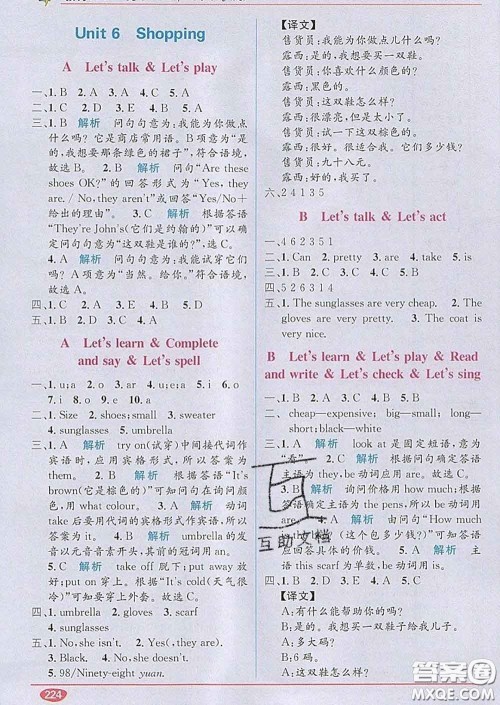 Unit 6 Shopping
A Let's talk & Let's play
一、1. B 2. A 3. A 4. B 5. A
二、1. C 2. D 3. E 4. B 5. A
三、1. B 解析 问句句意为:我能为你做点
什么吗? 它是商店常用语。B项意为“是
的,我想要那条绿色的裙子”,符合语境,
故选 B。 2. B 解析 问句“Are these
shoes OK?”的回答形式为“Yes, they
are. / No, they aren't”或回答“Yes/No+
给出的理由”。 3. C 解析 根据答语
“They're John's(它们是约翰的)”可以确
定问句句意为“这双鞋是谁的?”,选 C。
4. A 解析 问句句意为:我能试穿它们
吗? A 项意为“当然。给你。”符合语境。
四、1. C 2. A 3. D 4. B
五、1. B 2. D 3. C 4. A
A Let's learn & Complete
and say & Let's spell
一、1. u;a 2. o 3. ar 4. u;e;a 5. i
6. i 7. o 8. o
二、1. Size 2. shoes;small 3. sweater
4. sunglasses 5. umbrella
三、1. A 解析 try on(试穿)中间接代词作
宾语时,应用宾格形式,所以答案为
them。 2. B 解析 根据答语“It's
brown(它是棕色的)”可知问句在询问颜
色,用 what colour。 3. A 解析 动词
take 后要用代词的宾格形式作宾语,所以
答案为 them。 4. B 解析 umbrella 的发
音以元音音素开头,其前的冠词用 an。
5. B 解析 take off脱下;put away放
好;put on 穿上。根据“It's cold(天气很
冷)”可知要穿上外套。故选 C。
四、1. umbrella 2. gloves 3. scarf
4. sunglasses
五、1. No, she isn't. 2. Yes(,they are).
3. Black. 4. No(,he doesn't).
5. 98/Ninety-eight yuan.
224
【译文】
售货员:我能为你做点儿什么吗?
露西:是的。我想要买一双鞋。
售货员:你喜欢什么颜色的?
露西:黑色的。
售货员:这双鞋怎么样?
露西:很漂亮,但是太大了。
售货员:试一下这双棕色的。
露西:很好。很适合我。它们多少钱?
售货员:九十八元。
露西:好的,我买了。
六、2 4 1 3 5
B Let's talk & Let's act
一、4 6 2 3 5 1
二、1. Can 2. pretty 3. are 4. take 5. is
三、1. B 2. A 3. C 4. B 5. C
四、5 2 6 3 1 4
五、1. The sunglasses are very cheap. 2. The
gloves are very pretty. 3. The coat is
very nice.
B Let's learn & Let's play & Read
and write & Let's check & Let's sing
一、1. B 2. B 3. A 4. A 5. B
二、cheap—expensive; big—small; long—
short;black—white
三、1. A 解析 look at 是固定短语,意为
“看”。 2. C 解析 根据问句确定答语
主语为 they,be 动词应用 are。故选 C。
3. B 解析 询问价格用 how much;根据
答语确定主语为 the pens,所以 be 动词用
are。 4. A 解析 由问句“How much
(这个包多少钱)”
5. A 解析
主语 this scarf 为单数,be 动词用 is。
四、1. C 2. D 3. E 4. A 5. B
【译文】
A:有什么能帮助你的吗?
B:是的。我想要买一双鞋子给我儿子。
A:多大码?
B:6 码。
A:这双鞋怎么样?
互助文档
答案圈
MXQE.COM